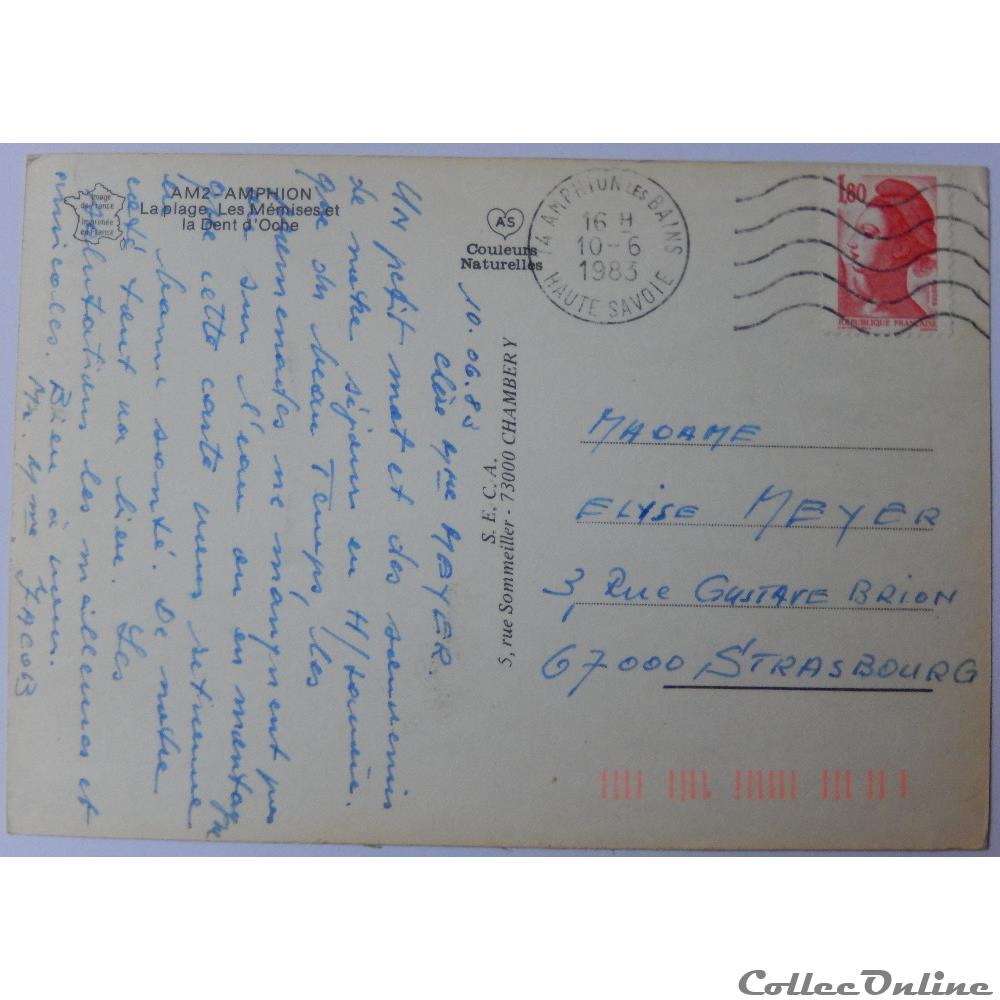 Image
de France
imprimée
en France
AM2 - AMPHION
La plage, Les Mémises et
la Dent d'Oche
AS
Couleurs
Naturelles
74 AMPHION LES BAINS
16 H
10-6
1983
HAUTE SAVOIE
1,80
REPUBLIQUE FRANCAISE
10.06.83
Chère Mme MEYER.
Un petit mot et des souvenirs
de notre séjour en H/Savoie.
que du beau Temps, les
promenades ne manquent pas
sur l'eau ou en montagne
que cette carte vous retienne
bonne santé. De notre
coté tout va bien. Les
salutations les meilleures et
amicales. Bien à vous.
Mr. Mme JACOB
S. E. C. A.
5, rue Sommeiller - 73000 CHAMBERY
MADAME
ELYSE MEYER
3, Rue GUSTAVE BRION
67000 STRASBOURG
CollecOnline